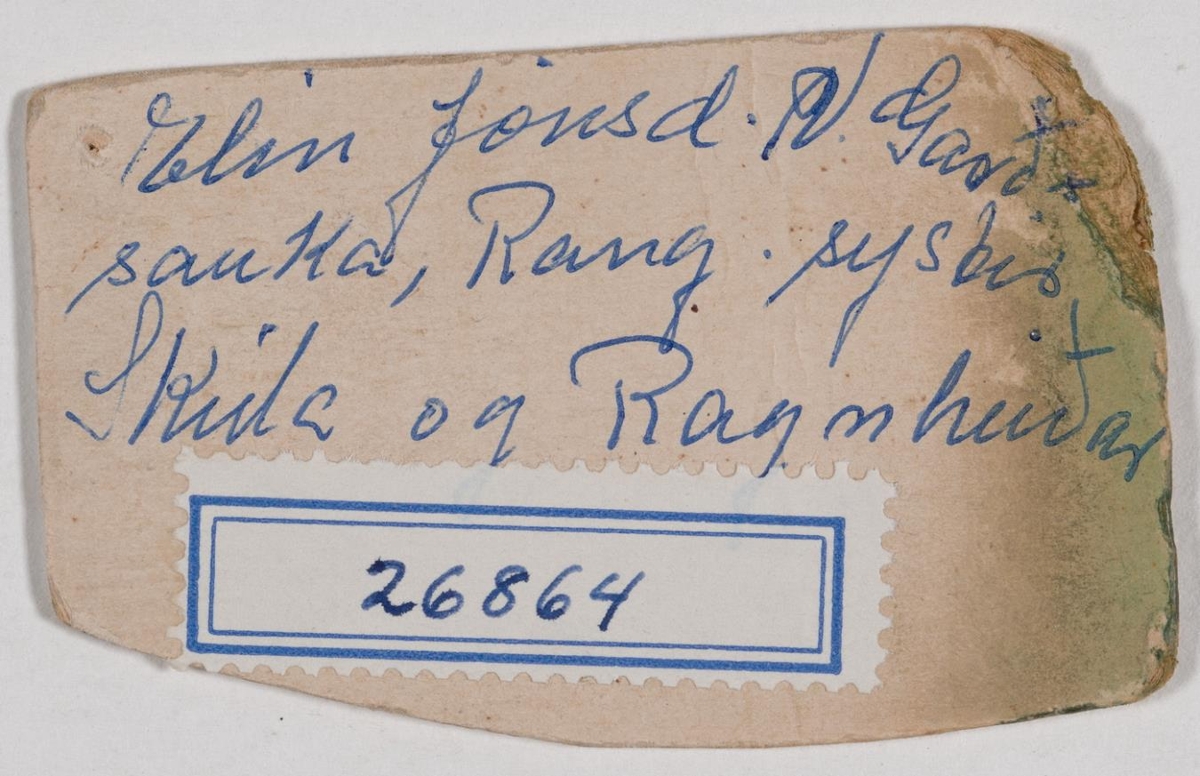 Elin Jónsd. N. Garð-
sauka, Rang. systir
Skúla og Ragnheiðar
26864